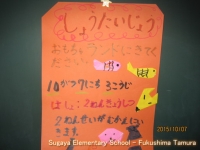 しょうたいじょう
おもちゃランドにきてく
ださい
10がつ7にち3こうじ
ばしょ 2ねんきょうしつ
2ねんせいがむかえに
いきます。
2015/10/07
Sugaya Elementary School - Fukushima Tamura